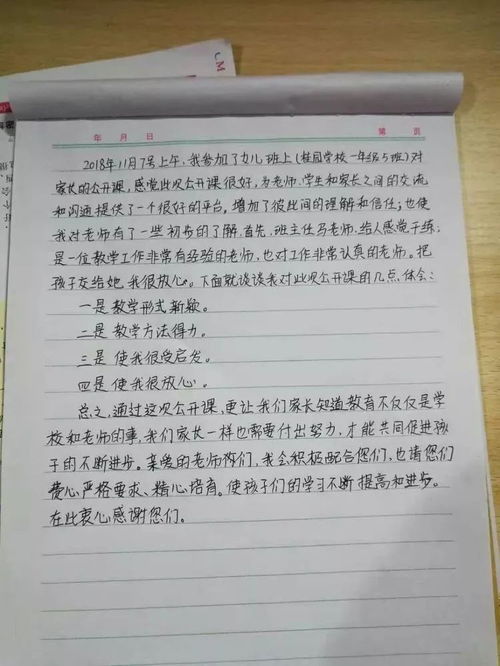 年 月 日 第 页
2018年11月7号上午，我参加了女儿班上(桂园学校一年级5班)对
家长的公开课，感觉此次公开课很好，为老师、学生和家长之间的交流
和沟通提供了一个很好的平台，增加了彼此间的理解和信任；也使
我对老师有了一些初步的了解，首先，班主任马老师，给人感觉干练；
是一位教学工作非常有经验的老师，也对工作非常认真的老师。把
孩子交给她，我很放心。下面就谈谈我对此次公开课的几点体会：
一是教学形式新颖。
二是教学方法得力。
三是使我很受启发。
四是使我很放心。
总之，通过这次公开课，更让我们家长知道教育不仅仅是学
校和老师的事，我们家长一样也需要付出努力，才能共同促进孩
子的不断进步。亲爱的老师们，我会积极配合您们，也请您们
费心严格要求、精心培育。使孩子们的学习不断提高和进步。
在此衷心感谢您们。